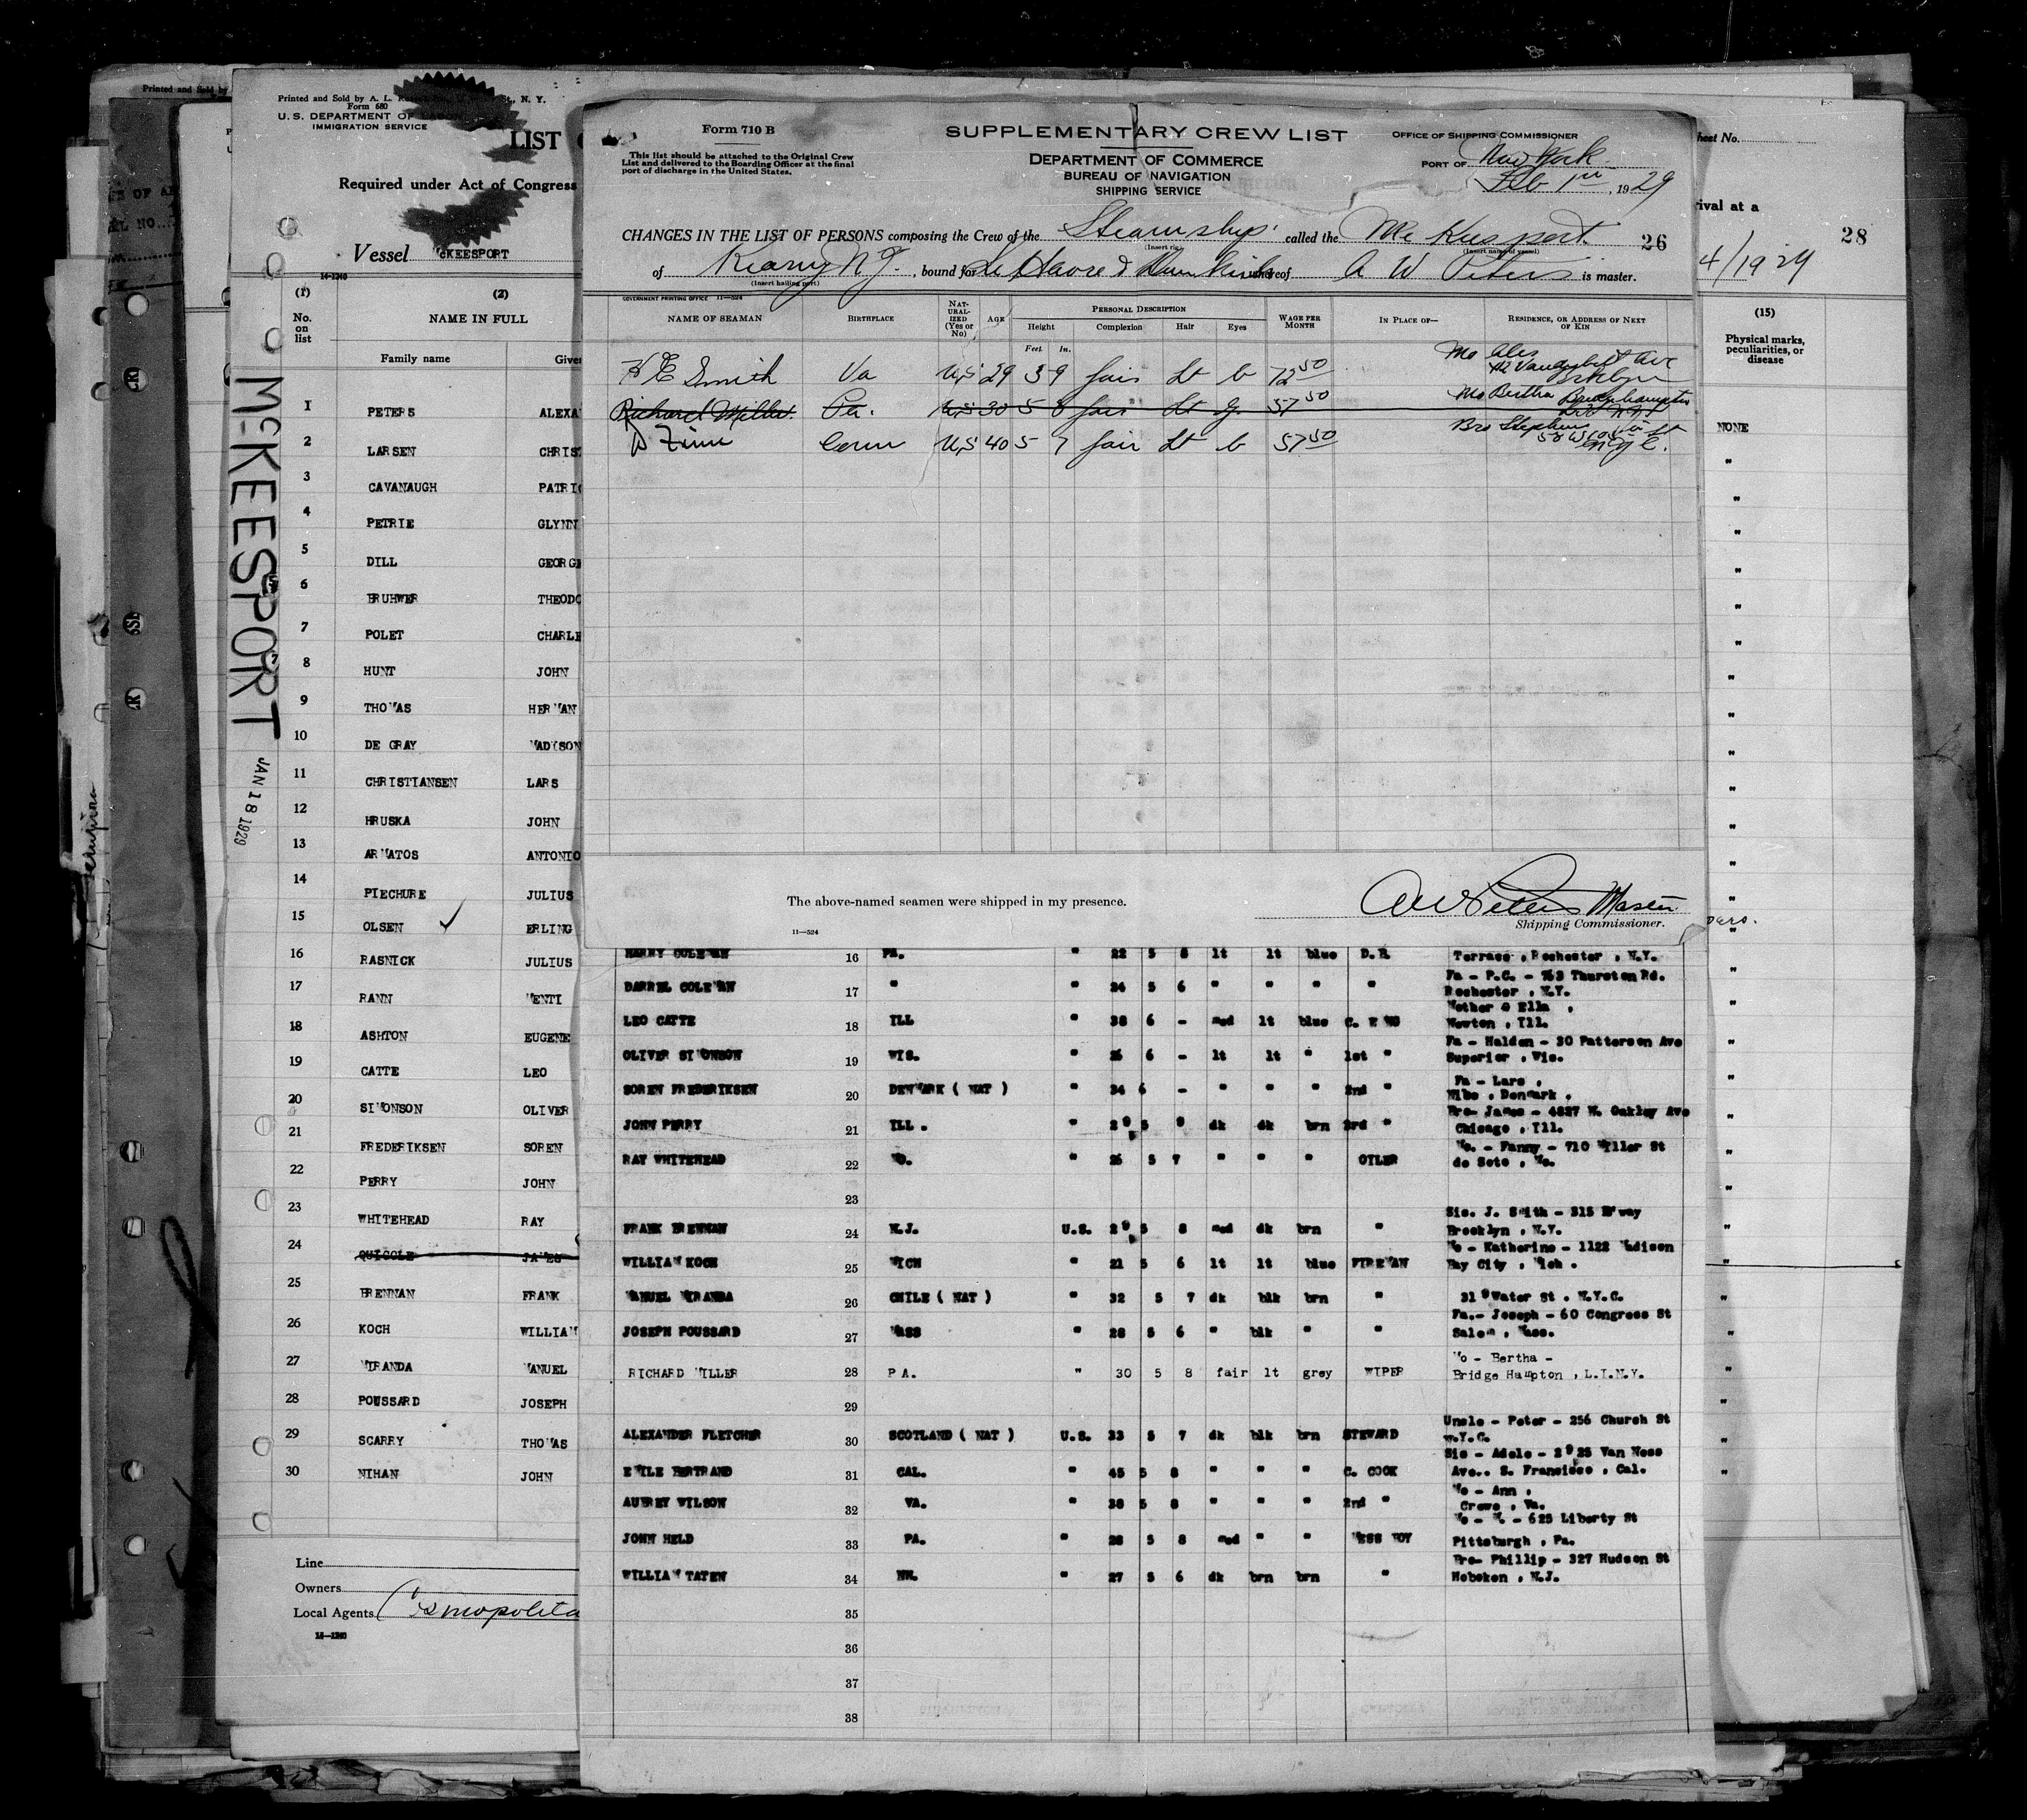 Printed and Sold by
Printed and Sold by A. L. St., N. Y.
Form 680
U. S. DEPARTMENT OF LABOR
IMMIGRATION SERVICE
LIST
Required under Act of Congress
Vessel McKEESPORT
14-1240
(1) (2)
No. on list NAME IN FULL
Family name Give
McKEESPORT
JAN 18 1929
1 PETERS ALEXA
2 LARSEN CHRIST
3 CAVANAUGH PATRIC
4 PETRIE GLYNN
5 DILL GEORGE
6 BRUHWER THEODO
7 POLET CHARLE
8 HUNT JOHN
9 THOMAS HERMAN
10 DE GRAY MADISON
11 CHRISTIANSEN LARS
12 HRUSKA JOHN
13 ARMATOS ANTONIO
14 PIECHURE JULIUS
15 OLSEN ERLING
16 RASNICK JULIUS
17 RANN MENTI
18 ASHTON EUGENE
19 CATTE LEO
20 SIMONSON OLIVER
21 FREDERIKSEN SOREN
22 PERRY JOHN
23 WHITEHEAD RAY
24 QUICOLE JAMES
25 BRENNAN FRANK
26 KOCH WILLIAM
27 MIRANDA MANUEL
28 POUSSARD JOSEPH
29 SCARRY THOMAS
30 NIHAN JOHN
Line
Owners
Local Agents Cosmopolita
14-1240
Form 710 B
This list should be attached to the Original Crew
List and delivered to the Boarding Officer at the final
port of discharge in the United States.
SUPPLEMENTARY CREW LIST
DEPARTMENT OF COMMERCE
BUREAU OF NAVIGATION
SHIPPING SERVICE
OFFICE OF SHIPPING COMMISSIONER
PORT OF New York
Feb 1st, 1929
CHANGES IN THE LIST OF PERSONS composing the Crew of the Steamship called the Mc Keesport 26
(Insert rig) (Insert name of vessel)
of Kearny N J., bound for Le Havre & Dunkirk whereof A W Peters is master.
(Insert hailing port)
GOVERNMENT PRINTING OFFICE 11-524
NAME OF SEAMAN BIRTHPLACE NATURALIZED (Yes or No) AGE PERSONAL DESCRIPTION WAGE PER MONTH IN PLACE OF— RESIDENCE, OR ADDRESS OF NEXT OF KIN
Height Complexion Hair Eyes
Feet In.
H E Smith Va US 29 5 9 fair Lt b 72 50 Vanderbilt Ave Brklyn
Richard Miller Pa. US 30 5 8 fair Lt g 57 50 Mo Bertha Bridgehampton
D Zinn Conn US 40 5 7 fair Lt b 57 50 Bro Stephen N.Y.C.
The above-named seamen were shipped in my presence.
A W Peters Master
Shipping Commissioner.
11-524
HARRY COLEMAN 16 PA. " 22 5 8 lt lt blue D.B. Terrace, Rochester, N.Y.
DARREL COLEMAN 17 " " 24 5 6 " " " " Fa - P.C. - 763 Thurston Rd. Rochester, N.Y.
LEO CATTE 18 ILL " 38 6 - med lt blue Mother @ Ella, Newton, Ill.
OLIVER SIMONSON 19 WIS. " 25 6 - lt lt " 1st " Fa - Halden - 30 Patterson Ave Superior, Wis.
SOREN FREDERIKSEN 20 DENMARK ( NAT ) " 34 6 - " " " 2nd " Fa - Lars, Nibe, Denmark.
JOHN PERRY 21 ILL. " 29 5 9 dk dk brn 3rd " Bro- James - 4827 N. Oakley Ave Chicago, Ill.
RAY WHITEHEAD 22 MO. " 25 5 7 " " " OILER Mo. - Fanny - 710 Miller St de Soto, Mo.
23
FRANK BRENNAN 24 N.J. U.S. 29 5 8 med dk brn " Sis. J. Smith - 315 B'way Brooklyn, N.Y.
WILLIAM KOCH 25 MICH " 21 5 6 lt lt blue FIREMAN Mo - Katherine - 1122 Madison Bay City, Mich.
MANUEL MIRANDA 26 CHILE ( NAT ) " 32 5 7 dk blk brn " 319 Water St. N.Y.C.
JOSEPH POUSSARD 27 MASS " 28 5 6 " blk " " Fa.- Joseph - 60 Congress St Salem, Mass.
RICHARD MILLER 28 PA. " 30 5 8 fair lt grey WIPER Mo - Bertha - Bridge Hampton, L.I.N.Y.
29
ALEXANDER FLETCHER 30 SCOTLAND ( NAT ) U.S. 33 5 7 dk blk brn STEWARD Uncle - Peter - 256 Church St N.Y.C.
EMILE BERTRAND 31 CAL. " 45 5 8 " " " C. COOK Sis - Adele - 2925 Van Ness Ave.. S. Francisco, Cal.
AUBREY WILSON 32 VA. " 38 5 8 " " " 2nd " Mo - Ann, Crewe, Va.
JOHN HELD 33 PA. " 28 5 8 med " " MESS BOY Mo - M. - 625 Liberty St Pittsburgh, Pa.
WILLIAM TATEN 34 " 27 5 6 dk brn brn " Bro- Phillip - 327 Hudson St Hoboken, N.J.
35
36
37
38
heet No.
rival at a
28
4/19 29
(15)
Physical marks, peculiarities, or disease
NONE